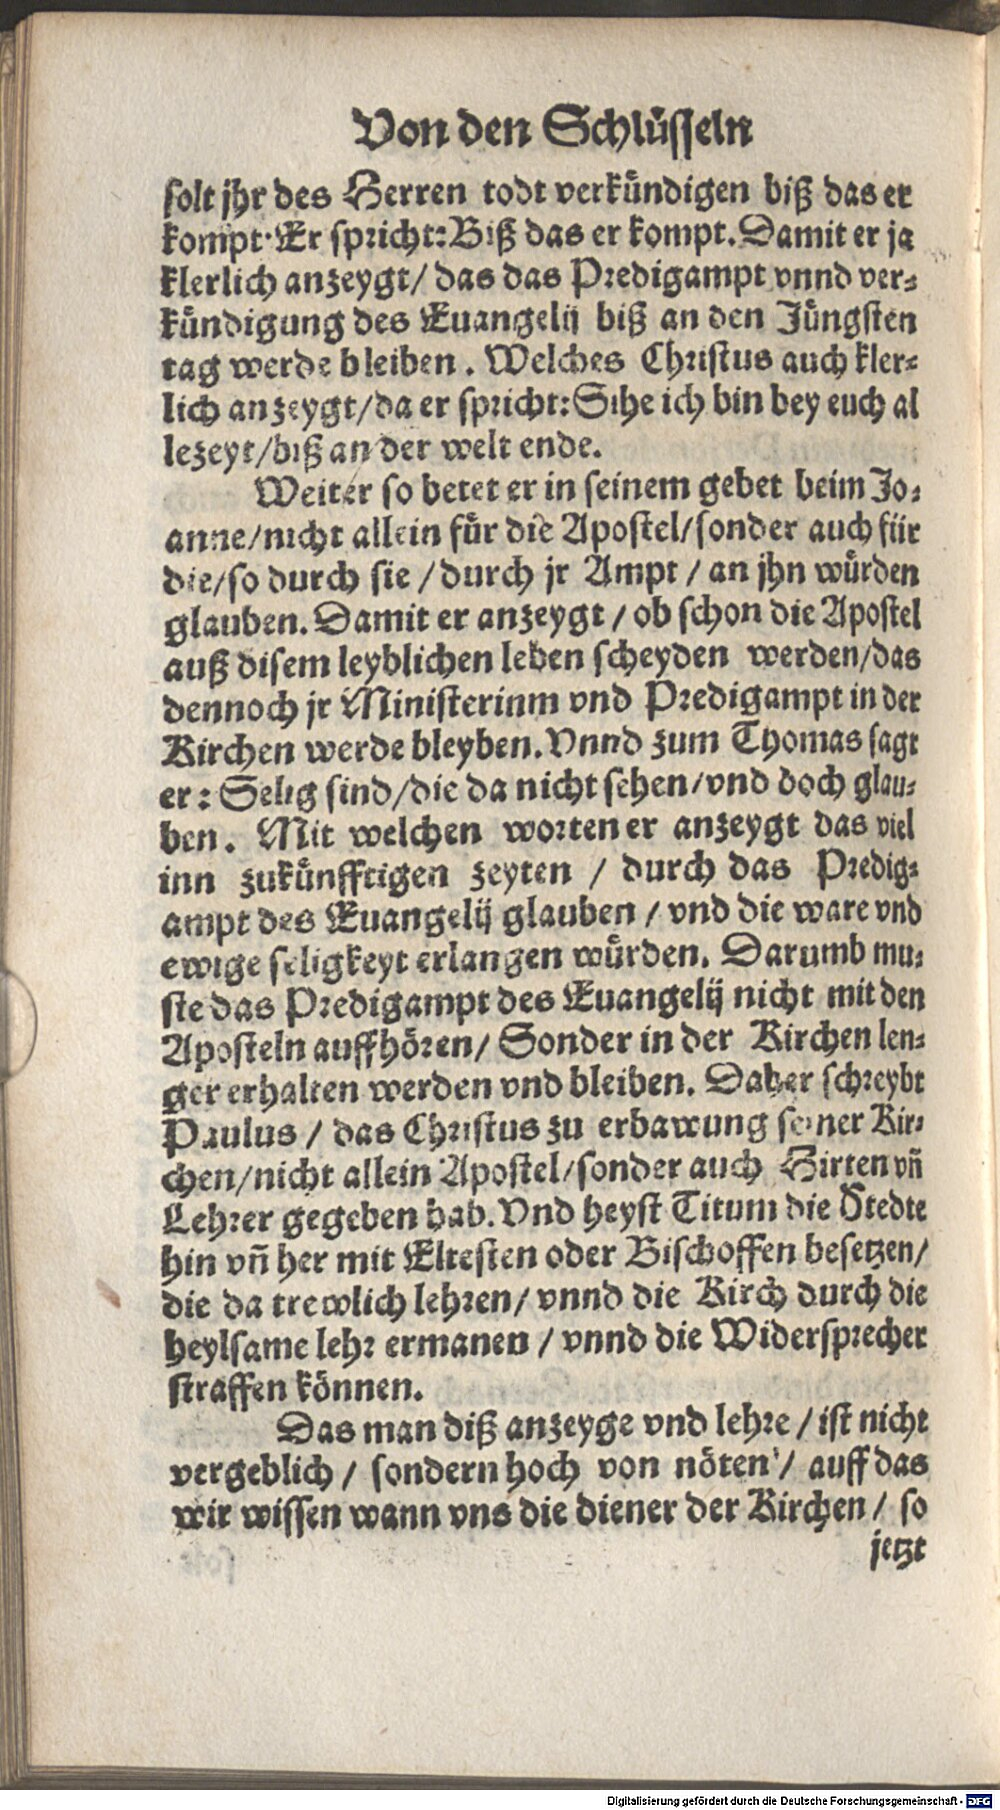 Von den Schlüsseln
solt jhr des Herren todt verkündigen biß das er
kompt·Er spricht:Biß das er kompt.Damit er ja
klerlich anzeygt/ das das Predigampt vnnd ver⸗
kündigung des Euangelij biß an den Jüngsten
tag werde bleiben. Welches Christus auch kler⸗
lich anzeygt/da er spricht:Sihe ich bin bey euch al
lezeyt/biß an der welt ende.
Weiter so betet er in seinem gebet beim Jo⸗
anne/nicht allein für die Apostel/sonder auch für
die/so durch sie /durch jr Ampt / an jhn würden
glauben. Damit er anzeygt / ob schon die Apostel
auß disem leyblichen leben scheyden werden/das
dennoch jr Ministerinm vnd Predigampt in der
Kirchen werde bleyben. Vnnd zum Thomas sagt
er: Selig sind/die da nicht sehen/vnd doch glau⸗
ben. Mit welchen worten er anzeygt das viel
inn zukünfftigen zeyten / durch das Predig⸗
ampt des Euangelij glauben / vnd die ware vnd
ewige seligkeyt erlangen würden. Darumb mu⸗
ste das Predigampt des Euangelij nicht mit den
Aposteln auffhören/ Sonder in der Kirchen len⸗
ger erhalten werden vnd bleiben. Daher schreybt
Paulus / das Christus zu erbawung seiner Kir⸗
chen/nicht allein Apostel/sonder auch Hirten vñ
Lehrer gegeben hab. Vnd heyst Titum die Stedte
hin vñ her mit Eltesten oder Bischoffen besetzen/
die da trewlich lehren/ vnnd die Kirch durch die
heylsame lehr ermanen / vnnd die Widersprecher
straffen können.
Das man diß anzeyge vnd lehre / ist nicht
vergeblich / sondern hoch von nöten / auff das
wir wissen wann vns die diener der Kirchen / so
jetzt
Digitalisierung gefördert durch die Deutsche Forschungsgemeinschaft - DFG